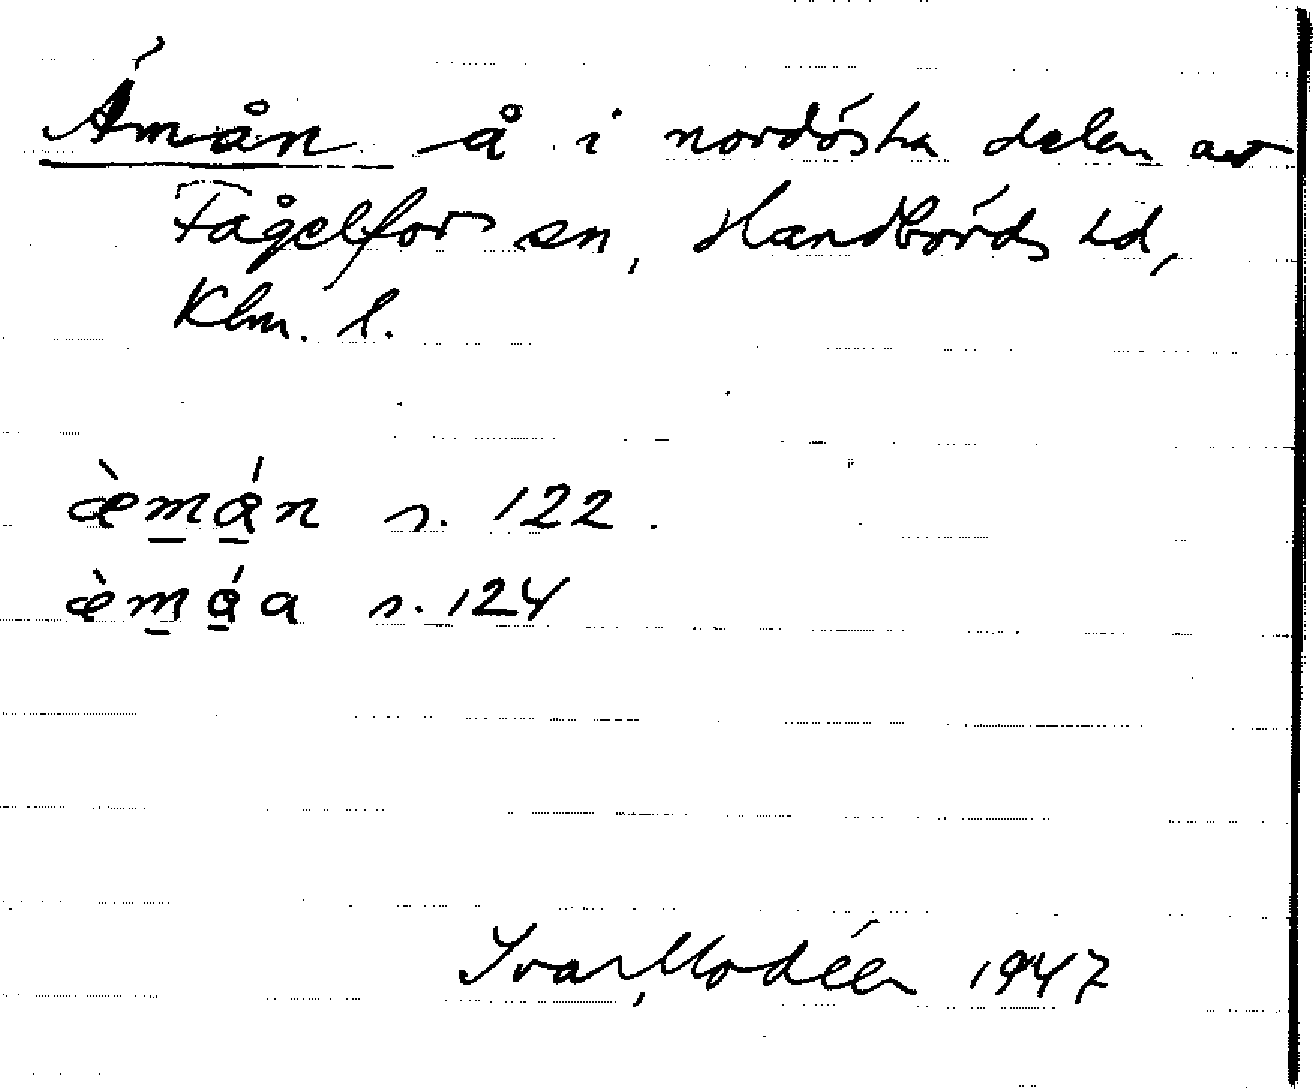 Ämån å i nordöstra delen av
Fågelfors sn, Handbörds hd,
Klm. l.
æ̀má̱n s. 122.
æ̀má̱a s. 124
Ivar Modéer 1947